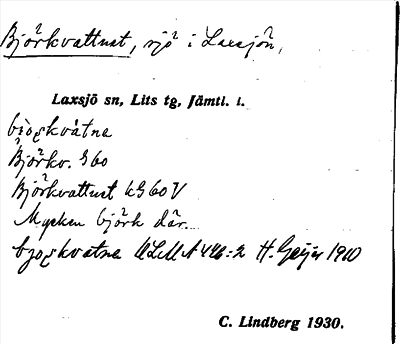 Björkvattnet, sjö i Laxsjön,
Laxsjö sn, Lits tg, Jämtl. l.
Björkv. S 60
Björkvattnet kS 60 V
Mycken björk där.
ULMA 446:2 H. Geijer 1910
C. Lindberg 1930.